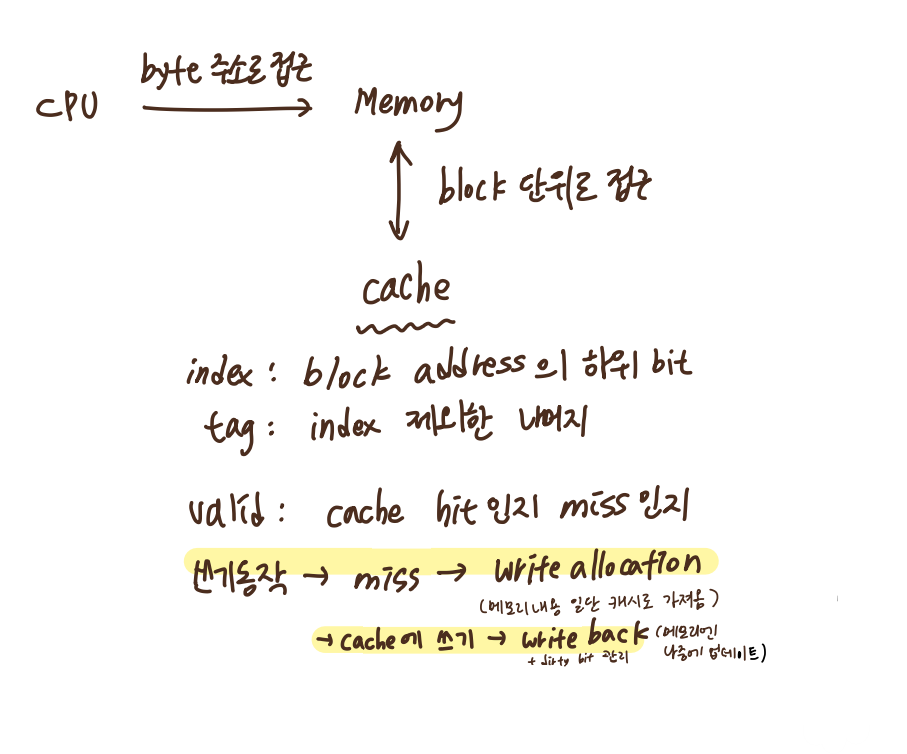 byte 주소로 접근
CPU → Memory
block 단위로 접근
cache
index : block address의 하위 bit
tag : index 제외한 나머지
valid : cache hit인지 miss인지
쓰기동작 → miss → write allocation
(메모리내용 일단 캐시로 가져옴)
→ cache에 쓰기 → write back (메모리엔
+ dirty bit 관리 나중에 업데이트)